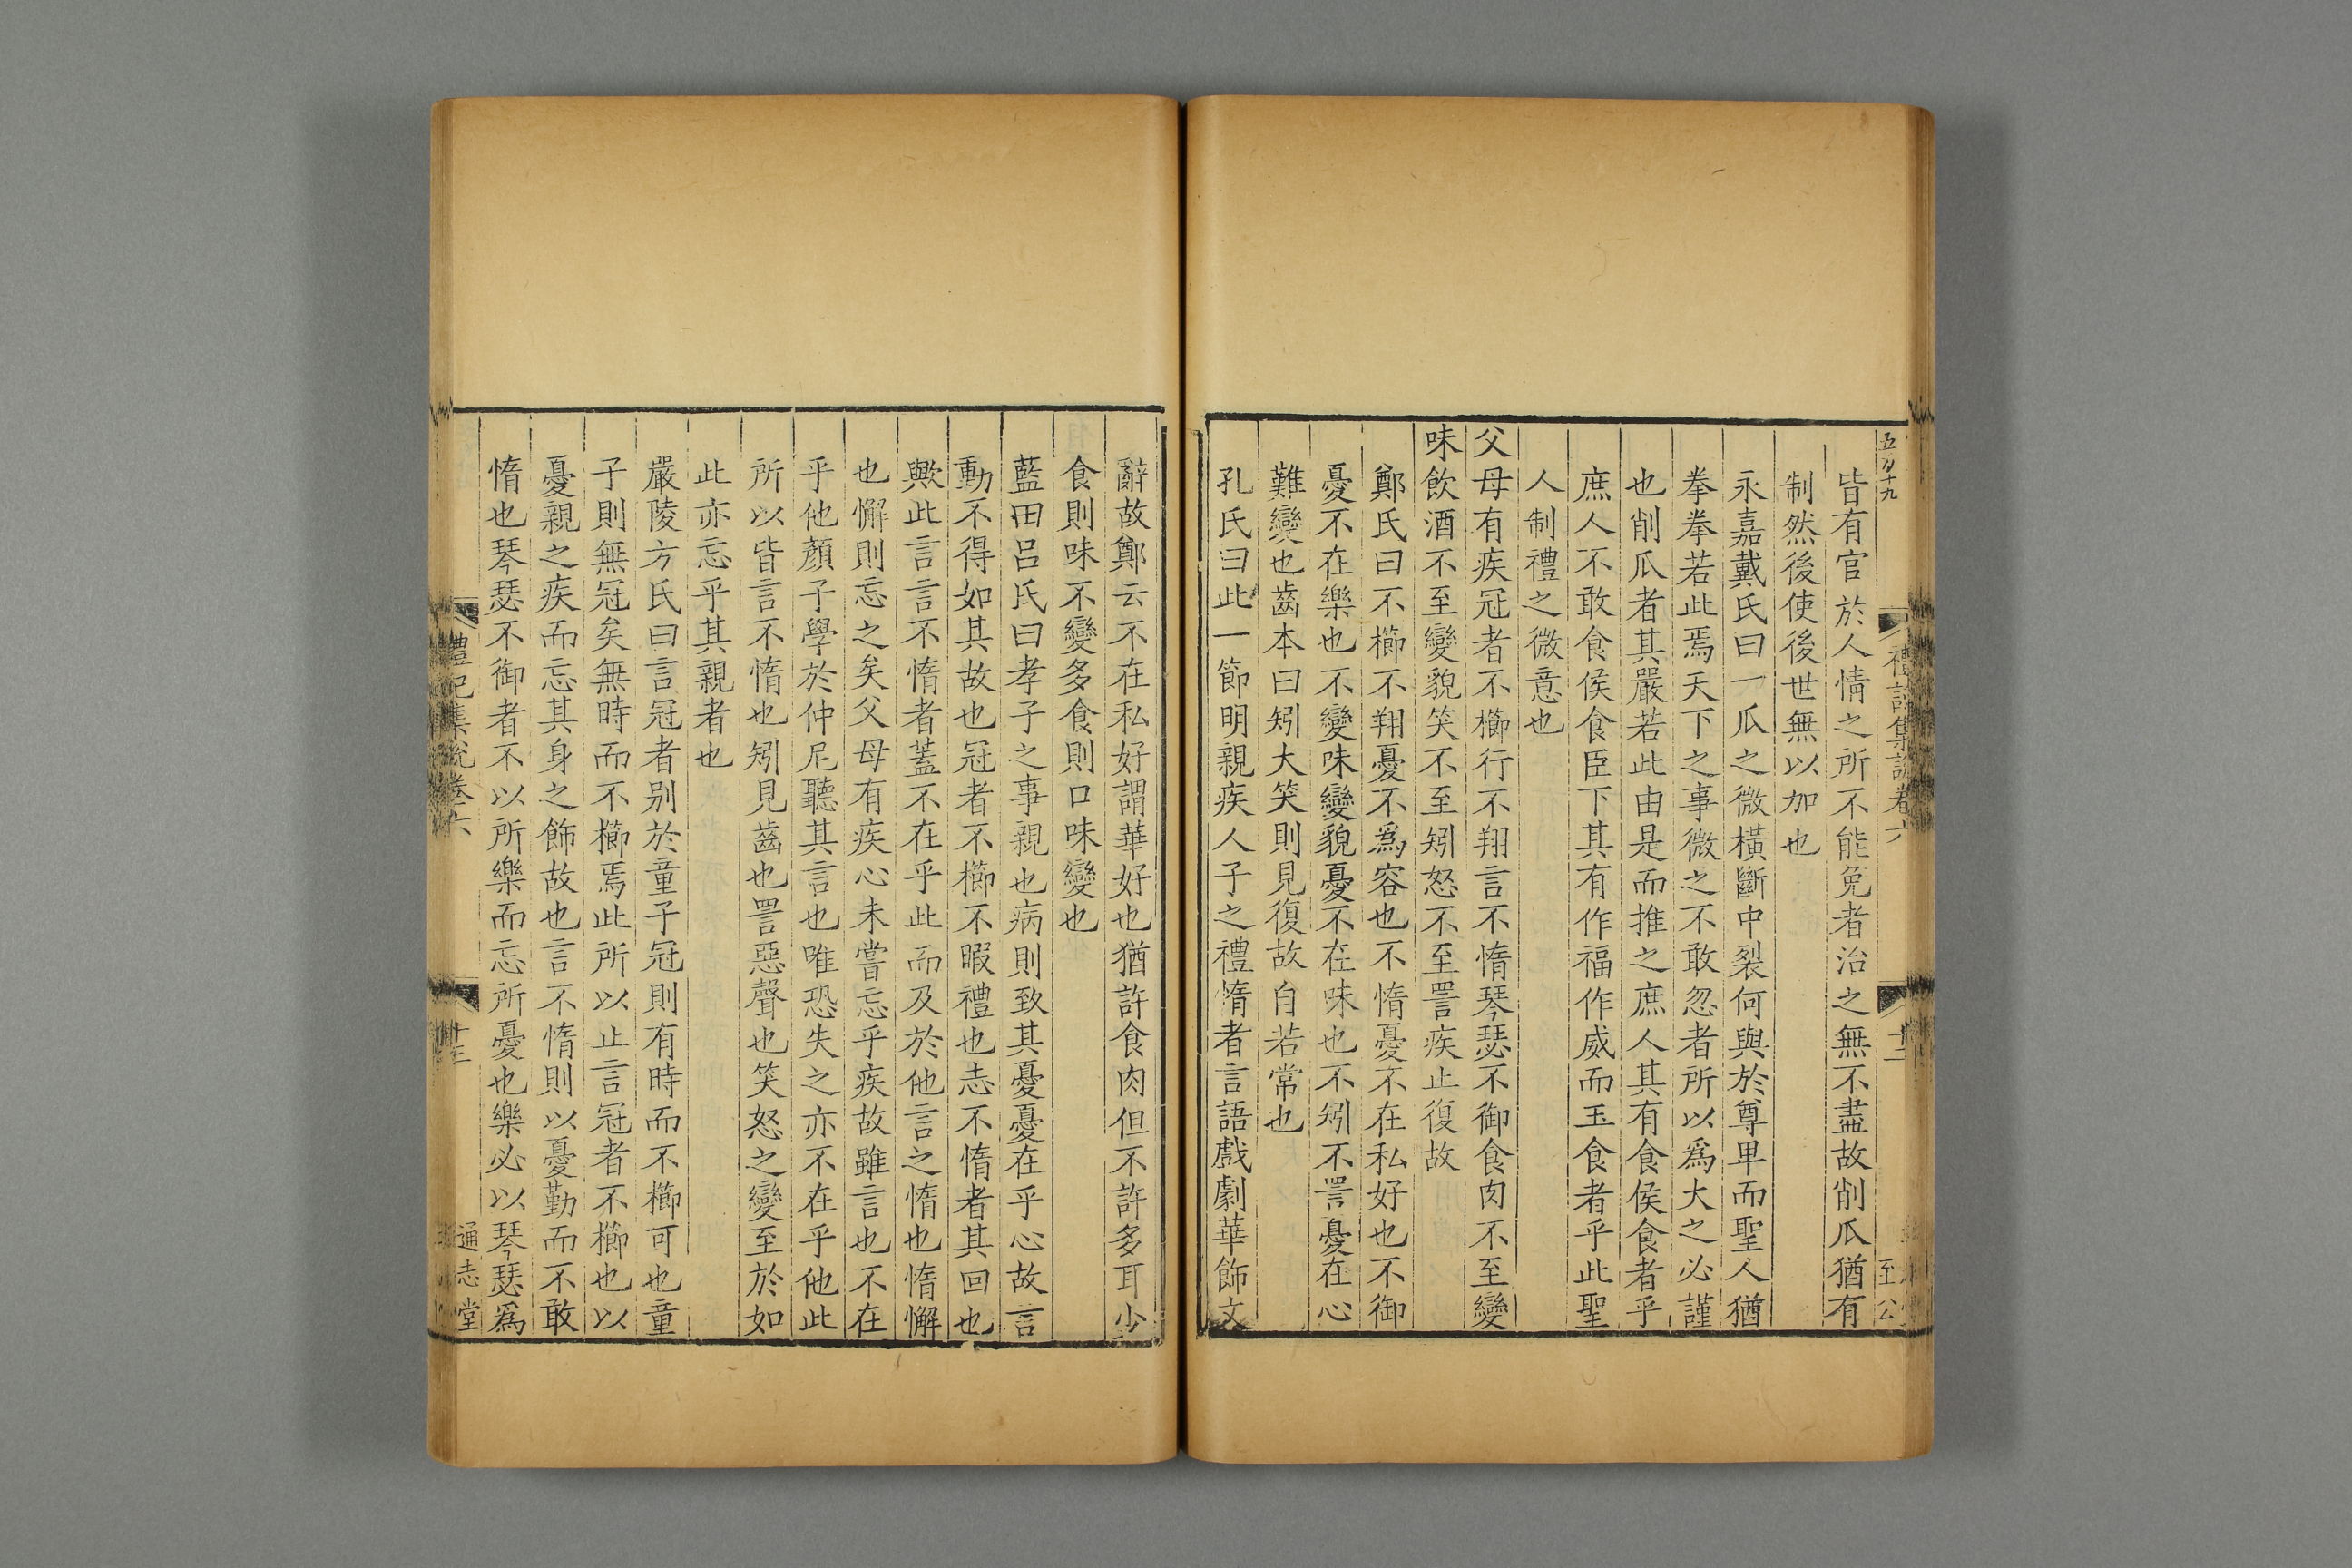 皆有官於人情之所不能免者治之無不盡故削瓜猶有
制然後使後世無以加也
永嘉戴氏曰一瓜之微橫斷中裂何與於尊卑而聖人猶
拳拳若此焉天下之事微之不敢忽者所以爲大之必謹
也削瓜者其嚴若此由是而推之庶人其有食侯食者乎
庶人不敢食侯食臣下其有作福作威而玉食者乎此聖
人制禮之微意也
父母有疾冠者不櫛行不翔言不惰琴瑟不御食肉不至變
味飲酒不至變貌笑不至矧怒不至詈疾止復故
鄭氏曰不櫛不翔憂不爲容也不惰憂不在私好也不御
憂不在樂也不變味變貌憂不在味也不矧不詈憂在心
難變也齒本曰矧大笑則見復故自若常也
孔氏曰此一節明親疾人子之禮惰者言語戲劇華飾文
辭故鄭云不在私好謂華好也猶許食肉但不許多耳少
食則味不變多食則口味變也
藍田呂氏曰孝子之事親也病則致其憂憂在乎心故言
動不得如其故也冠者不櫛不暇禮也志不惰者其回也
歟此言言不惰者蓋不在乎此而及於他言之惰也惰懈
也懈則忘之矣父母有疾心未嘗忘乎疾故雖言也不在
乎他顏子學於仲尼聽其言也唯恐失之亦不在乎他此
所以皆言不惰也矧見齒也詈惡聲也笑怒之變至於如
此亦忘乎其親者也
嚴陵方氏曰言冠者别於童子冠則有時而不櫛可也童
子則無冠矣無時而不櫛焉此所以止言冠者不櫛也以
憂親之疾而忘其身之飾故也言不惰則以憂勤而不敢
惰也琴瑟不御者不以所樂而忘所憂也樂必以琴瑟爲
禮記集說卷六
十三
通志堂